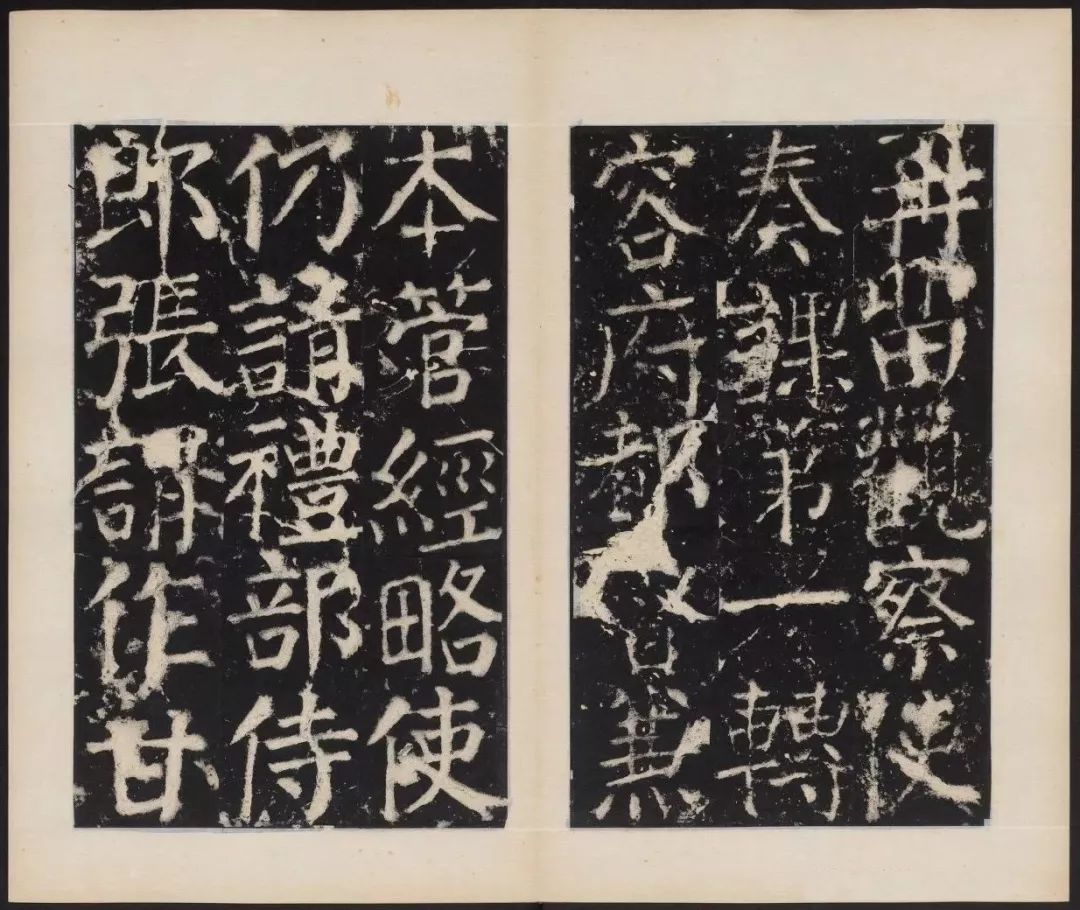 再留觀察使
奏課第一轉
容府都督兼
本管經略使
仍請禮部侍
郎張謂作甘